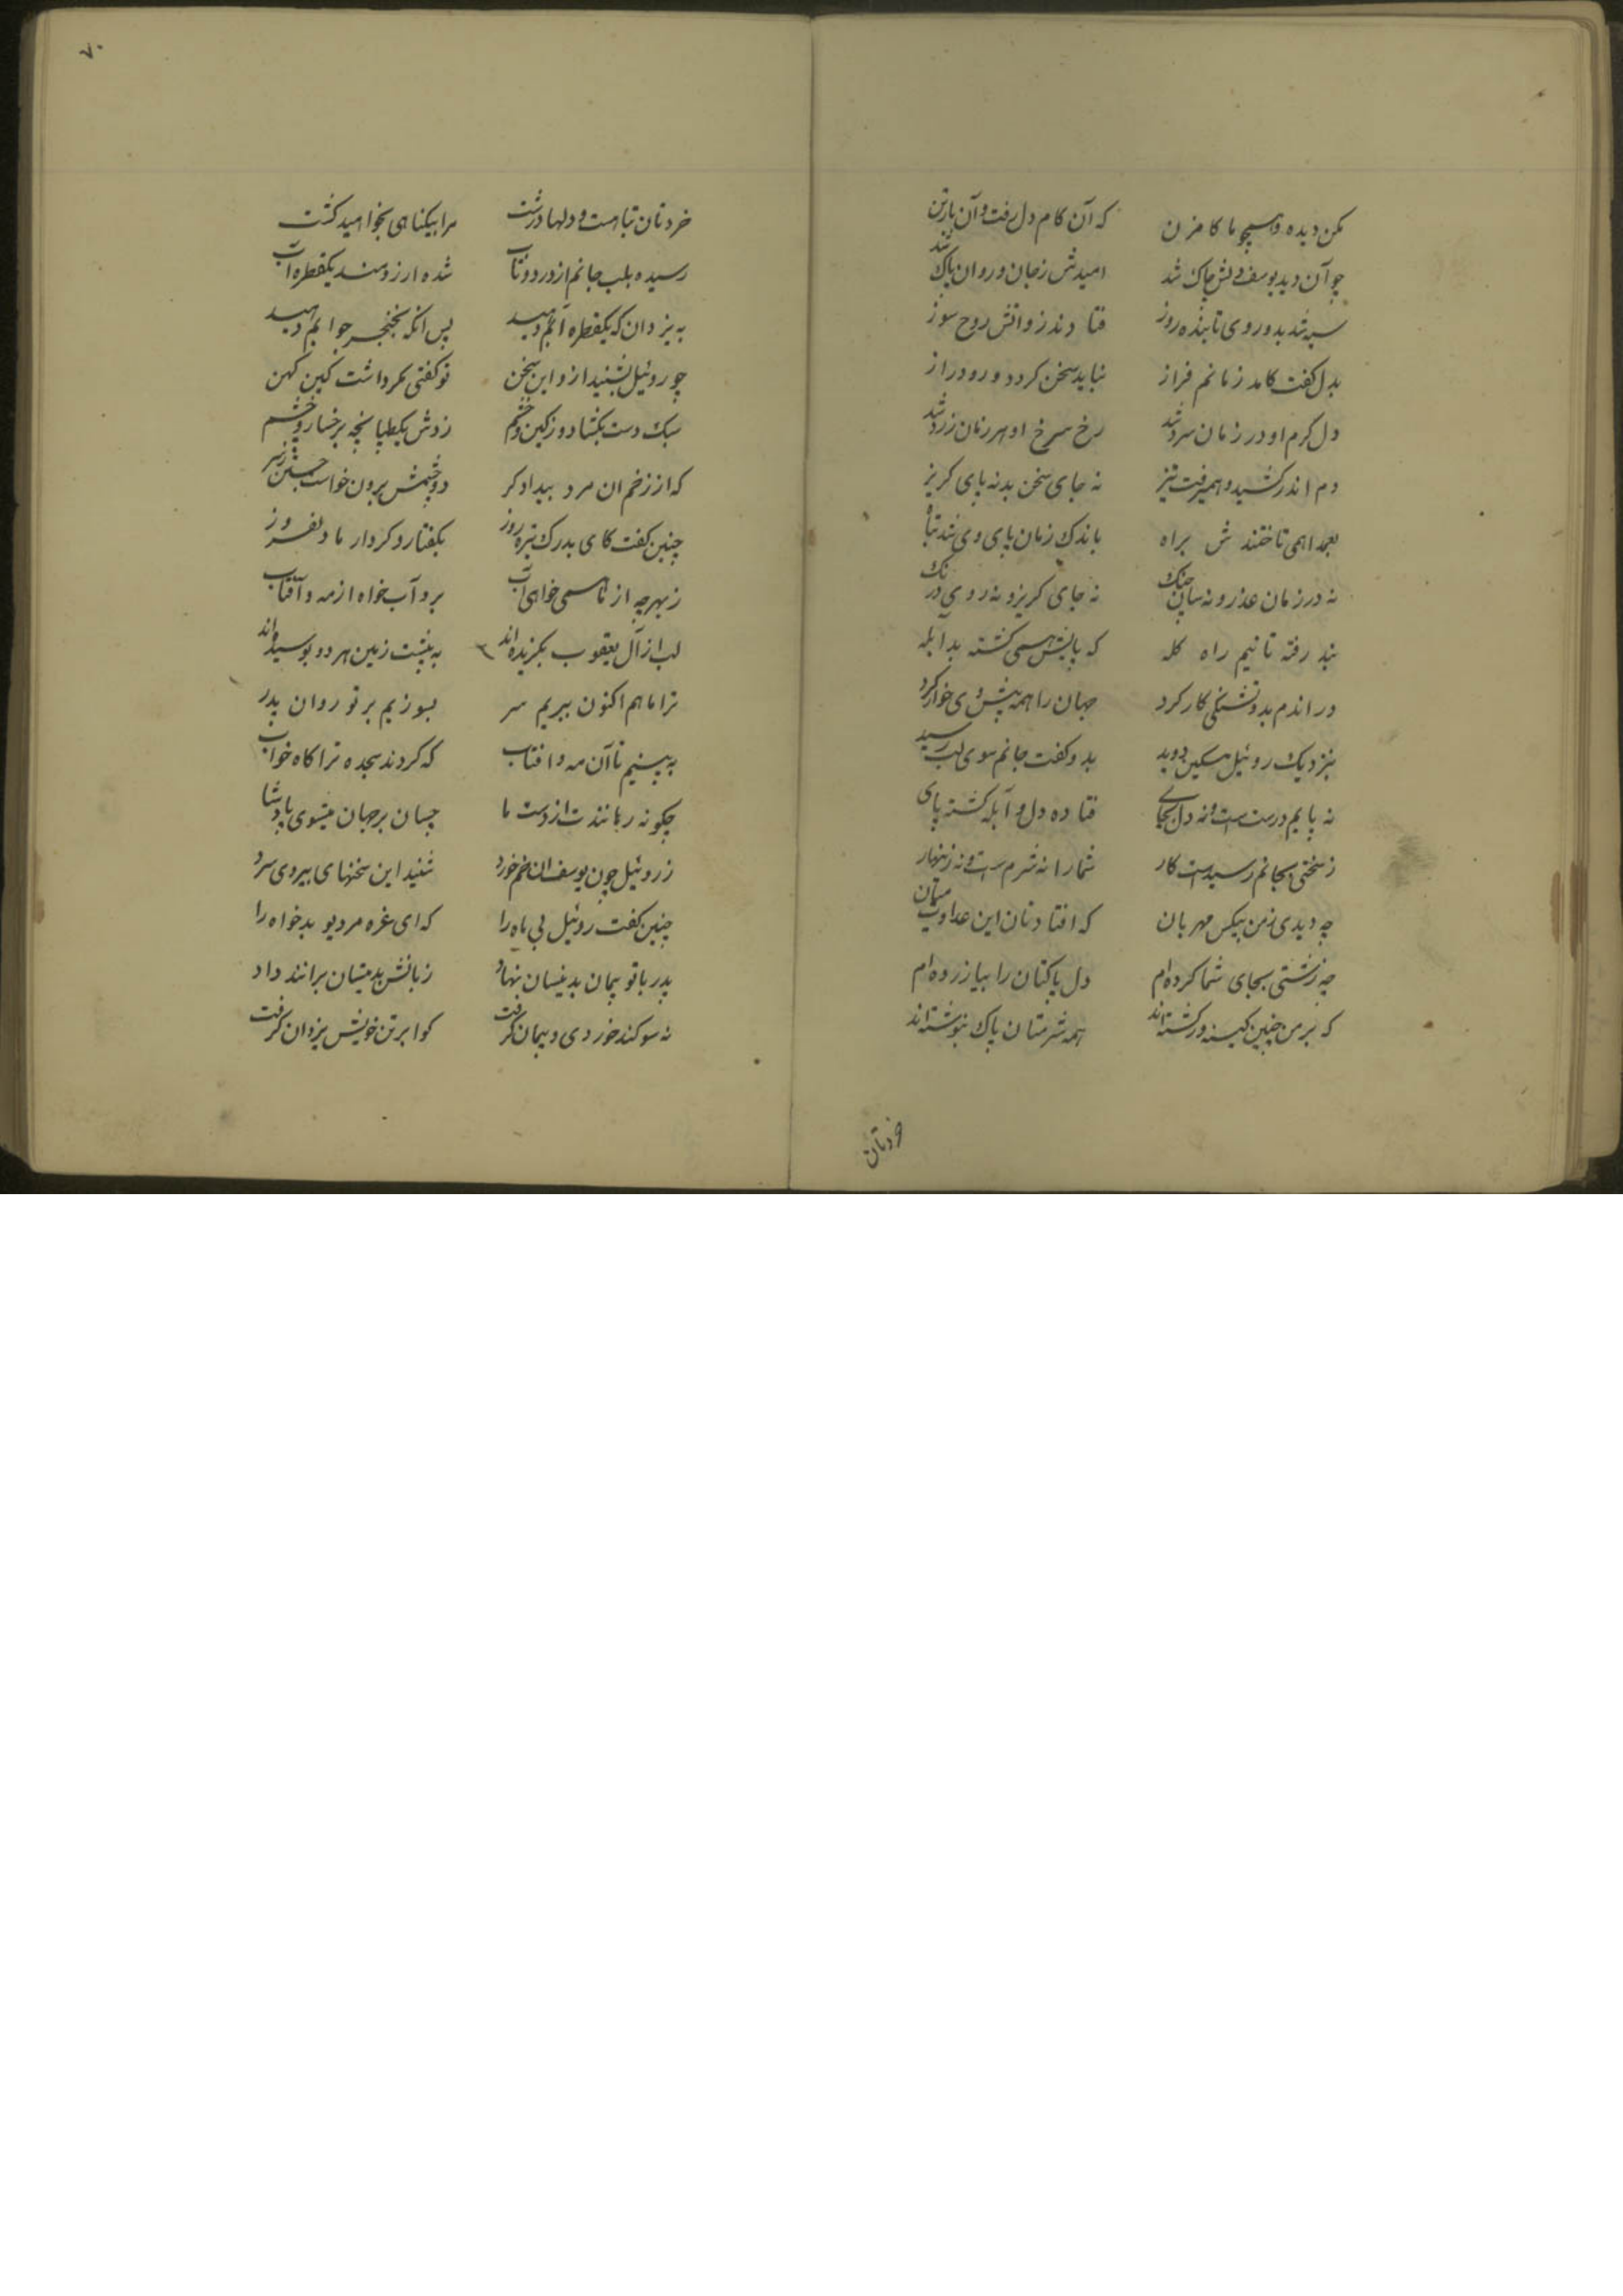 مکن دیده و همچو ما کامزن که آن کام دل رفت و آن یارتن
چو آن دید یوسف دلش چاک شد امیدش ز جان و روان پاک شد
سیه شد بدو روی تابنده روز فتادند زو آتش روح سوز
بدل گفت کامد زمانم فراز نباید سخن کرد دور و دراز
دل گرم او در زمان سرد شد رخ سرخ او هر زمان زرد شد
دم اندر کشید و همیرفت تیز نه جای سخن بد نه پای گریز
بعمدا همی تاختندش براه باندک زمان پای وی شد تباه
نه در زمان عذر و نه سان جنک نه جای کریز و نه روی درنک
بند رفته تا نیم راه کله که پایش همی کشته بد آبله
در اندم بدو تشنگی کار کرد جهان را همه پیش وی خوار کرد
بنزدیک روئیل مسکین دوید بدو کفت جانم سوی لب رسید
نه پایم درست است و نه دل بجای فتاده دل و آبله کشته پای
ز سختی بجانم رسیدست کار شما را نه شرم است و نه زینهار
چه دیدی ز من بیکس مهربان که افتادتان این عداوت میان
چه زشتی بجای شما کرده‌ام دل پاکتان را بیازرده‌ام
که بر من چنین کینه ور کشته‌اند همه شرمتان پاک بنوشته‌اند
خردتان
۷۰
خردتان تباهست و دلها درشت مرا بیکناهی بخواهید کشت
رسیده بلب جانم از درد و تاب شده ارزومند یکقطره آب
به یزدان که یکقطره آبم دهید پس انکه بخنجر جوابم دهید
چو روئیل بشنید ازو این سخن تو کفتی مکر داشت کین کهن
سبک دست بکشاد و ز کین و خشم زدش یک طپانچه برخسار و چشم
که از زخم ان مرد بیدادکر دو چشمش برون خواست جستن ز سر
چنین کفت کای بدرک تیره روز بکفتار و کردار مادلفروز
ز بهر چه از ما همی خواهی آب برو آب خواه از مه و آفتاب
لب از آل یعقوب بکزیده‌اند به پیشت زمین هر دو بوسیده‌اند
ترا ما هم اکنون ببریم سر بسوزیم بر تو روان پدر
به بینیم تا آن مه و افتاب که کردند سجده ترا کاه خواب
چکونه رهانندت از دست ما چسان بر جهان میشوی پادشا
ز روئیل چون یوسف ان زخم خورد شنید این سخنهای بیروی سرد
چنین کفت روئیل بی راه را که ای غره مر دیو بدخواه را
پدر با تو پیمان بدینسان نهاد زبانش بدینسان برانند داد
نه سوکند خوردی و پیمان کرفت کوا بر تن خویش یزدان کرفت